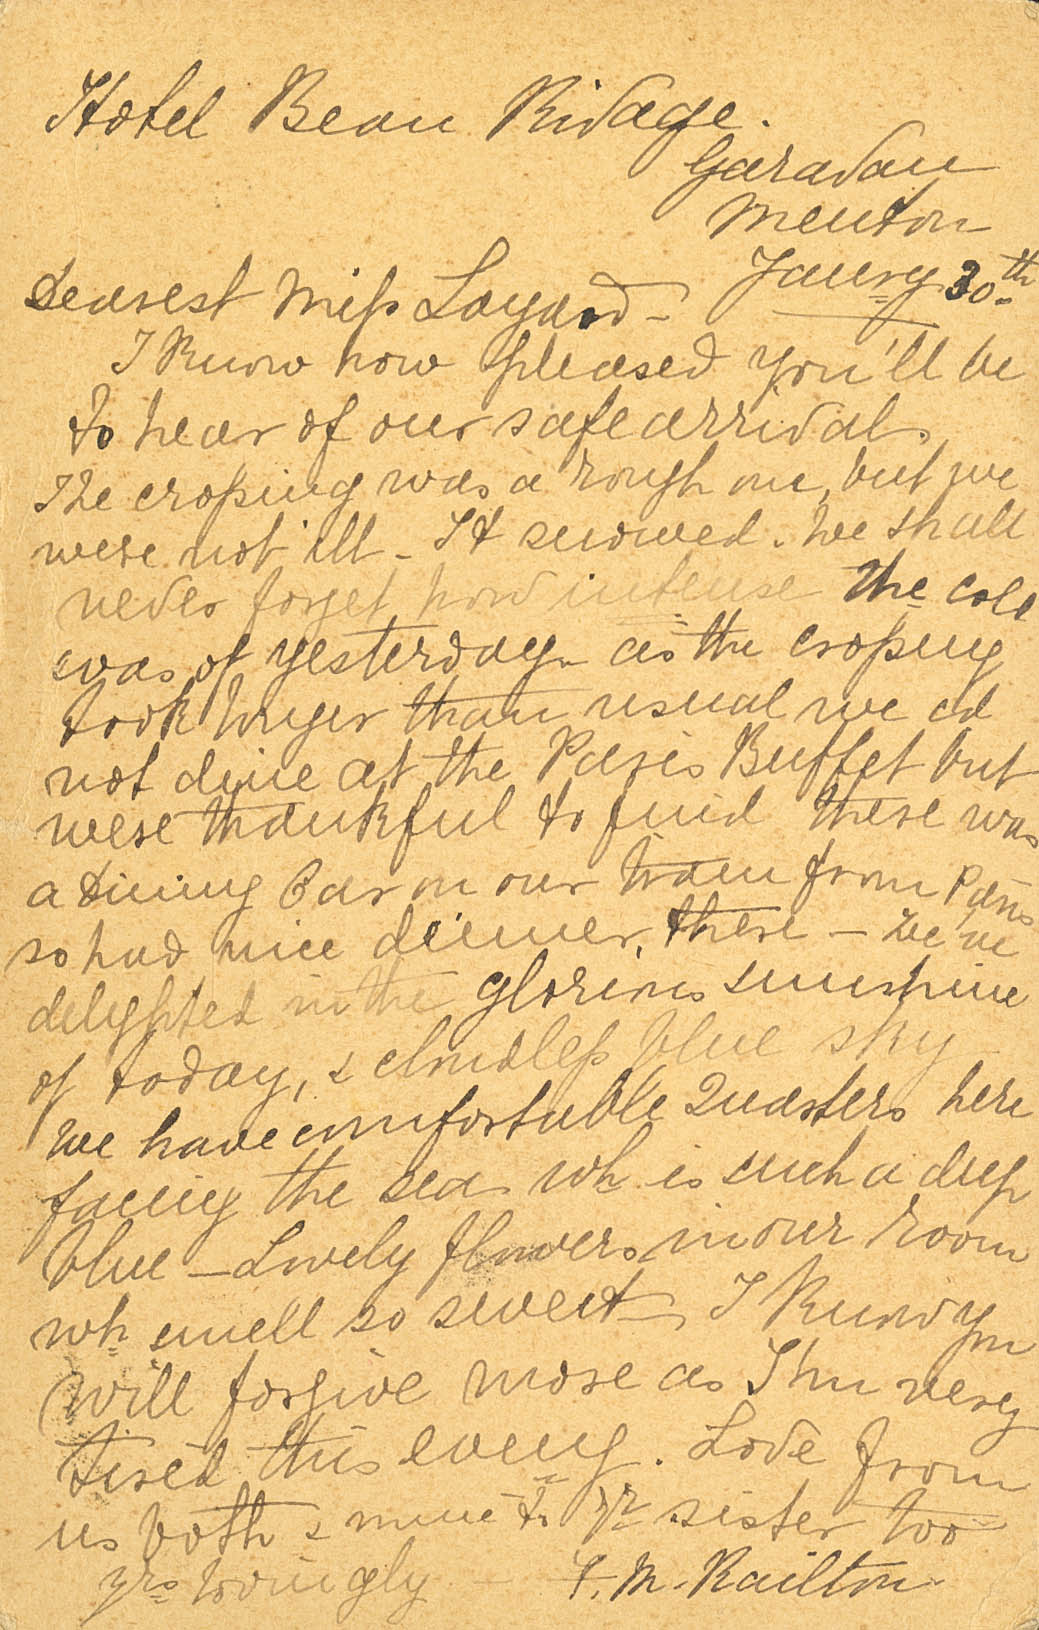 Hotel Beau Rivage.
Garavan
Menton
Jaury 30th
Dearest Miss Layard -
I know how pleased you'll be
to hear of our safe arrival.
The crossing was a rough one, but we
were not ill - It snowed. We shall
never forget how intense the cold
was of yesterday - as the crossing
took longer than usual we cd
not dine at the Paris Buffet but
were thankful to find there was
a Dining Car on our train from Paris
so had nice dinner, there - We've
delighted in the glorious sunshine
of today, & cloudless blue sky
We have comfortable Quarters here
facing the sea wh is such a deep
blue - Lovely flowers in our room
wh smell so sweet - I know you
will forgive more as I'm very
tired this eveng. Love from
us both & mine to yr sister too
yrs lovingly - F. M. Railton